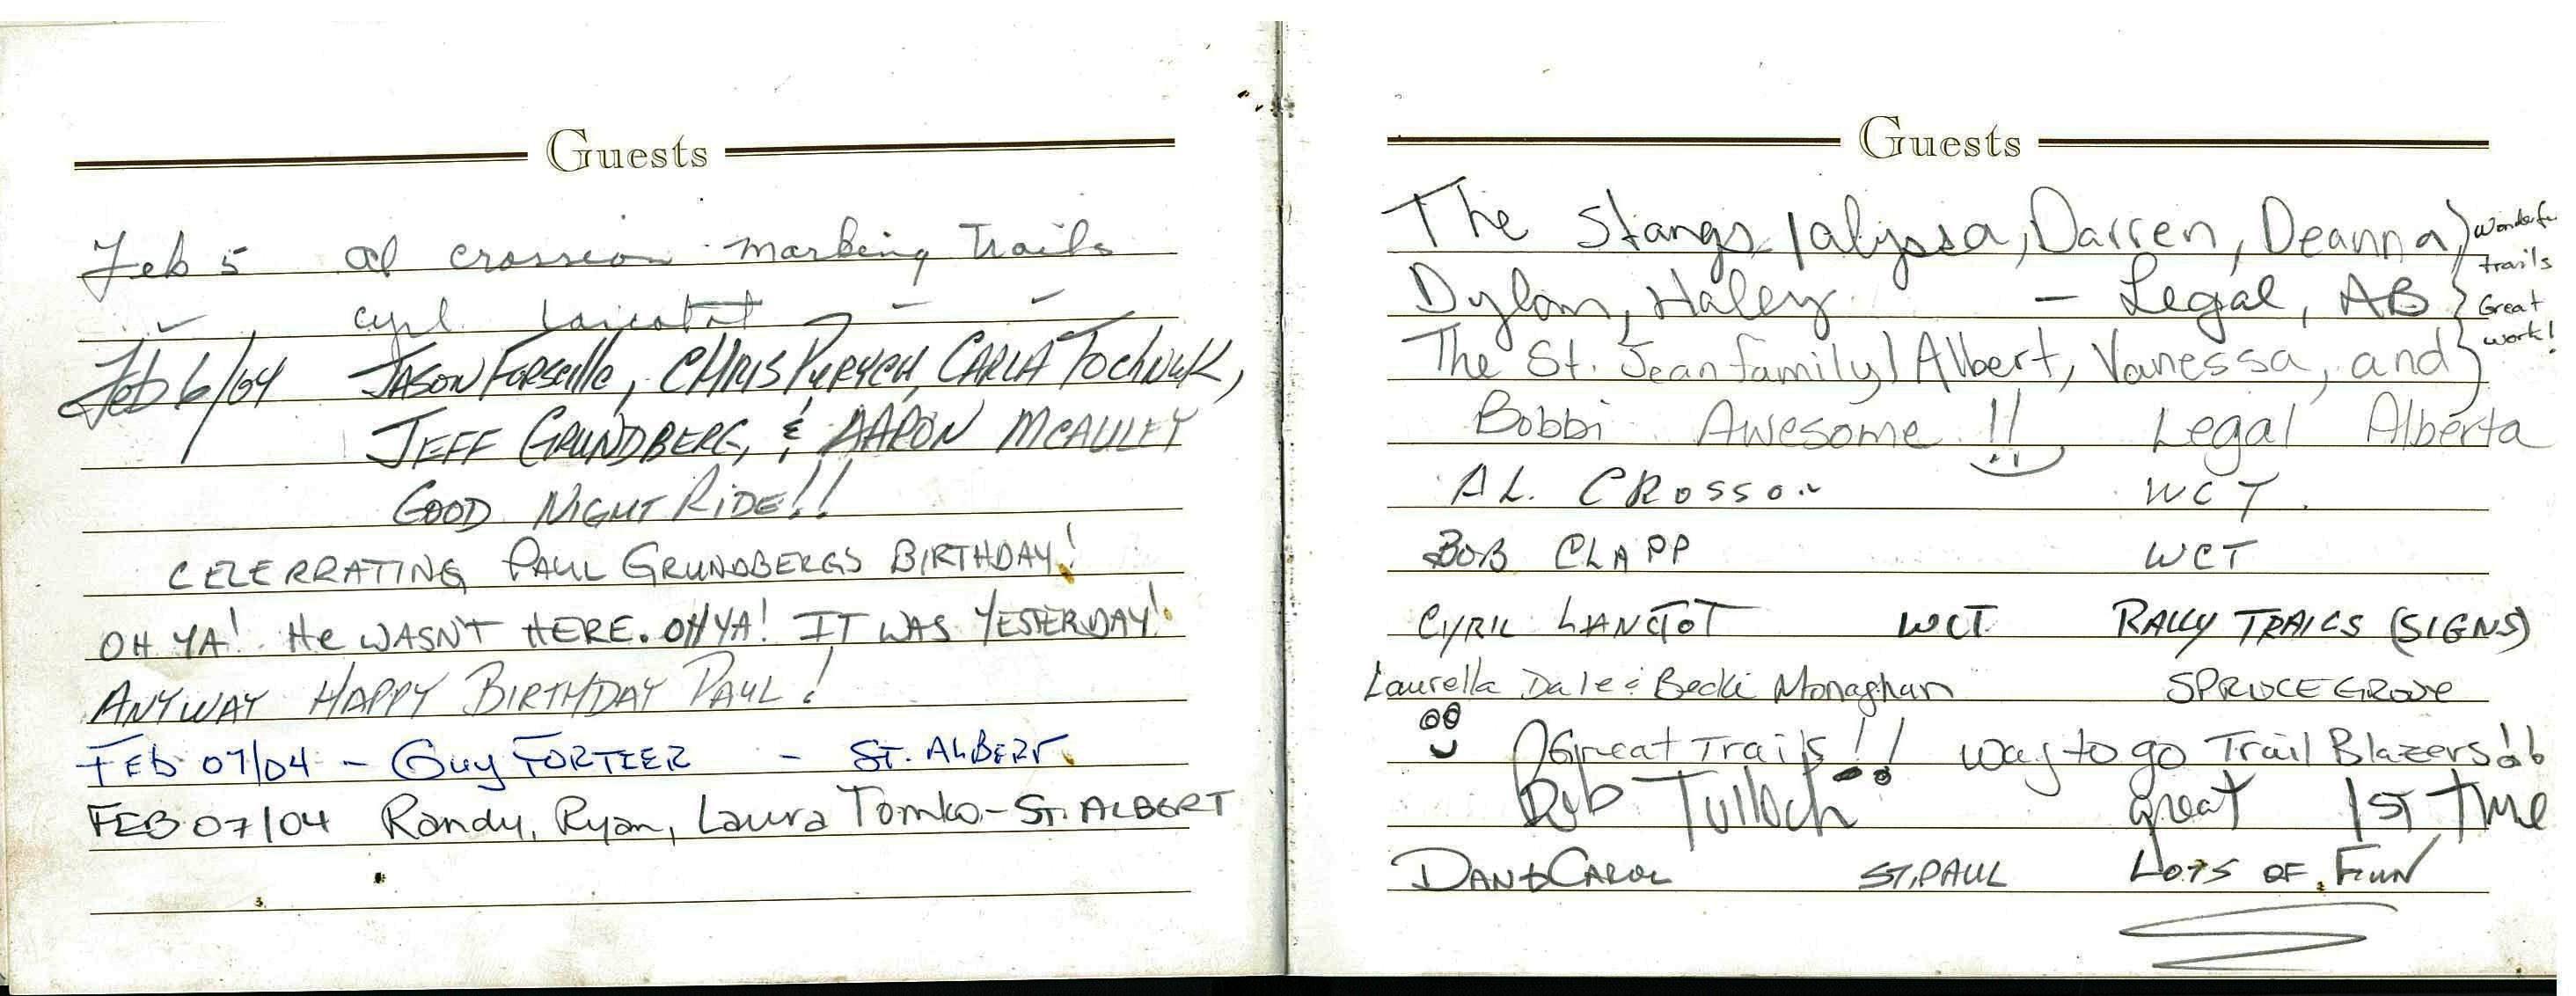 Guests
Feb 5 Al crosson marking Trails
cyril
Feb 6/04 JASON FORSEILLE, CHRIS PYRYCH, CARLA TOCHNUK,
JEFF GRUNDBERG, & AARON MCAULEY
GOOD NIGHT RIDE!!
CELERRATING PAUL GRUNDBERGS BIRTHDAY!
OH YA! He WASN'T HERE. OH YA! IT WAS YESTERDAY!
ANYWAY HAPPY BIRTHDAY PAUL!
FEB 07/04 - Guy FORTIER - ST. ALBERT.
FEB 07/04 Randy, Ryan, Laura Tomko - ST. ALBERT
Guests
The Stangs / alyssa, Darren, Deanna
Dylan, Haley - Legal, AB
Wonderful
trails
Great
work!
The St. Jean family / Albert, Vanessa, and
Bobbi Awesome !! Legal Alberta
AL. CROSSON WCT.
BOB CLAPP WCT
CYRIL LANCTOT WCT RALLY TRAILS (SIGNS)
Laurella Dale & Becki Monaghan SPRUCE GROVE
Great Trails!! way to go Trail Blazers!!
Bob Tulloch great 1st time
DAN & CAROL ST. PAUL LOTS OF FUN